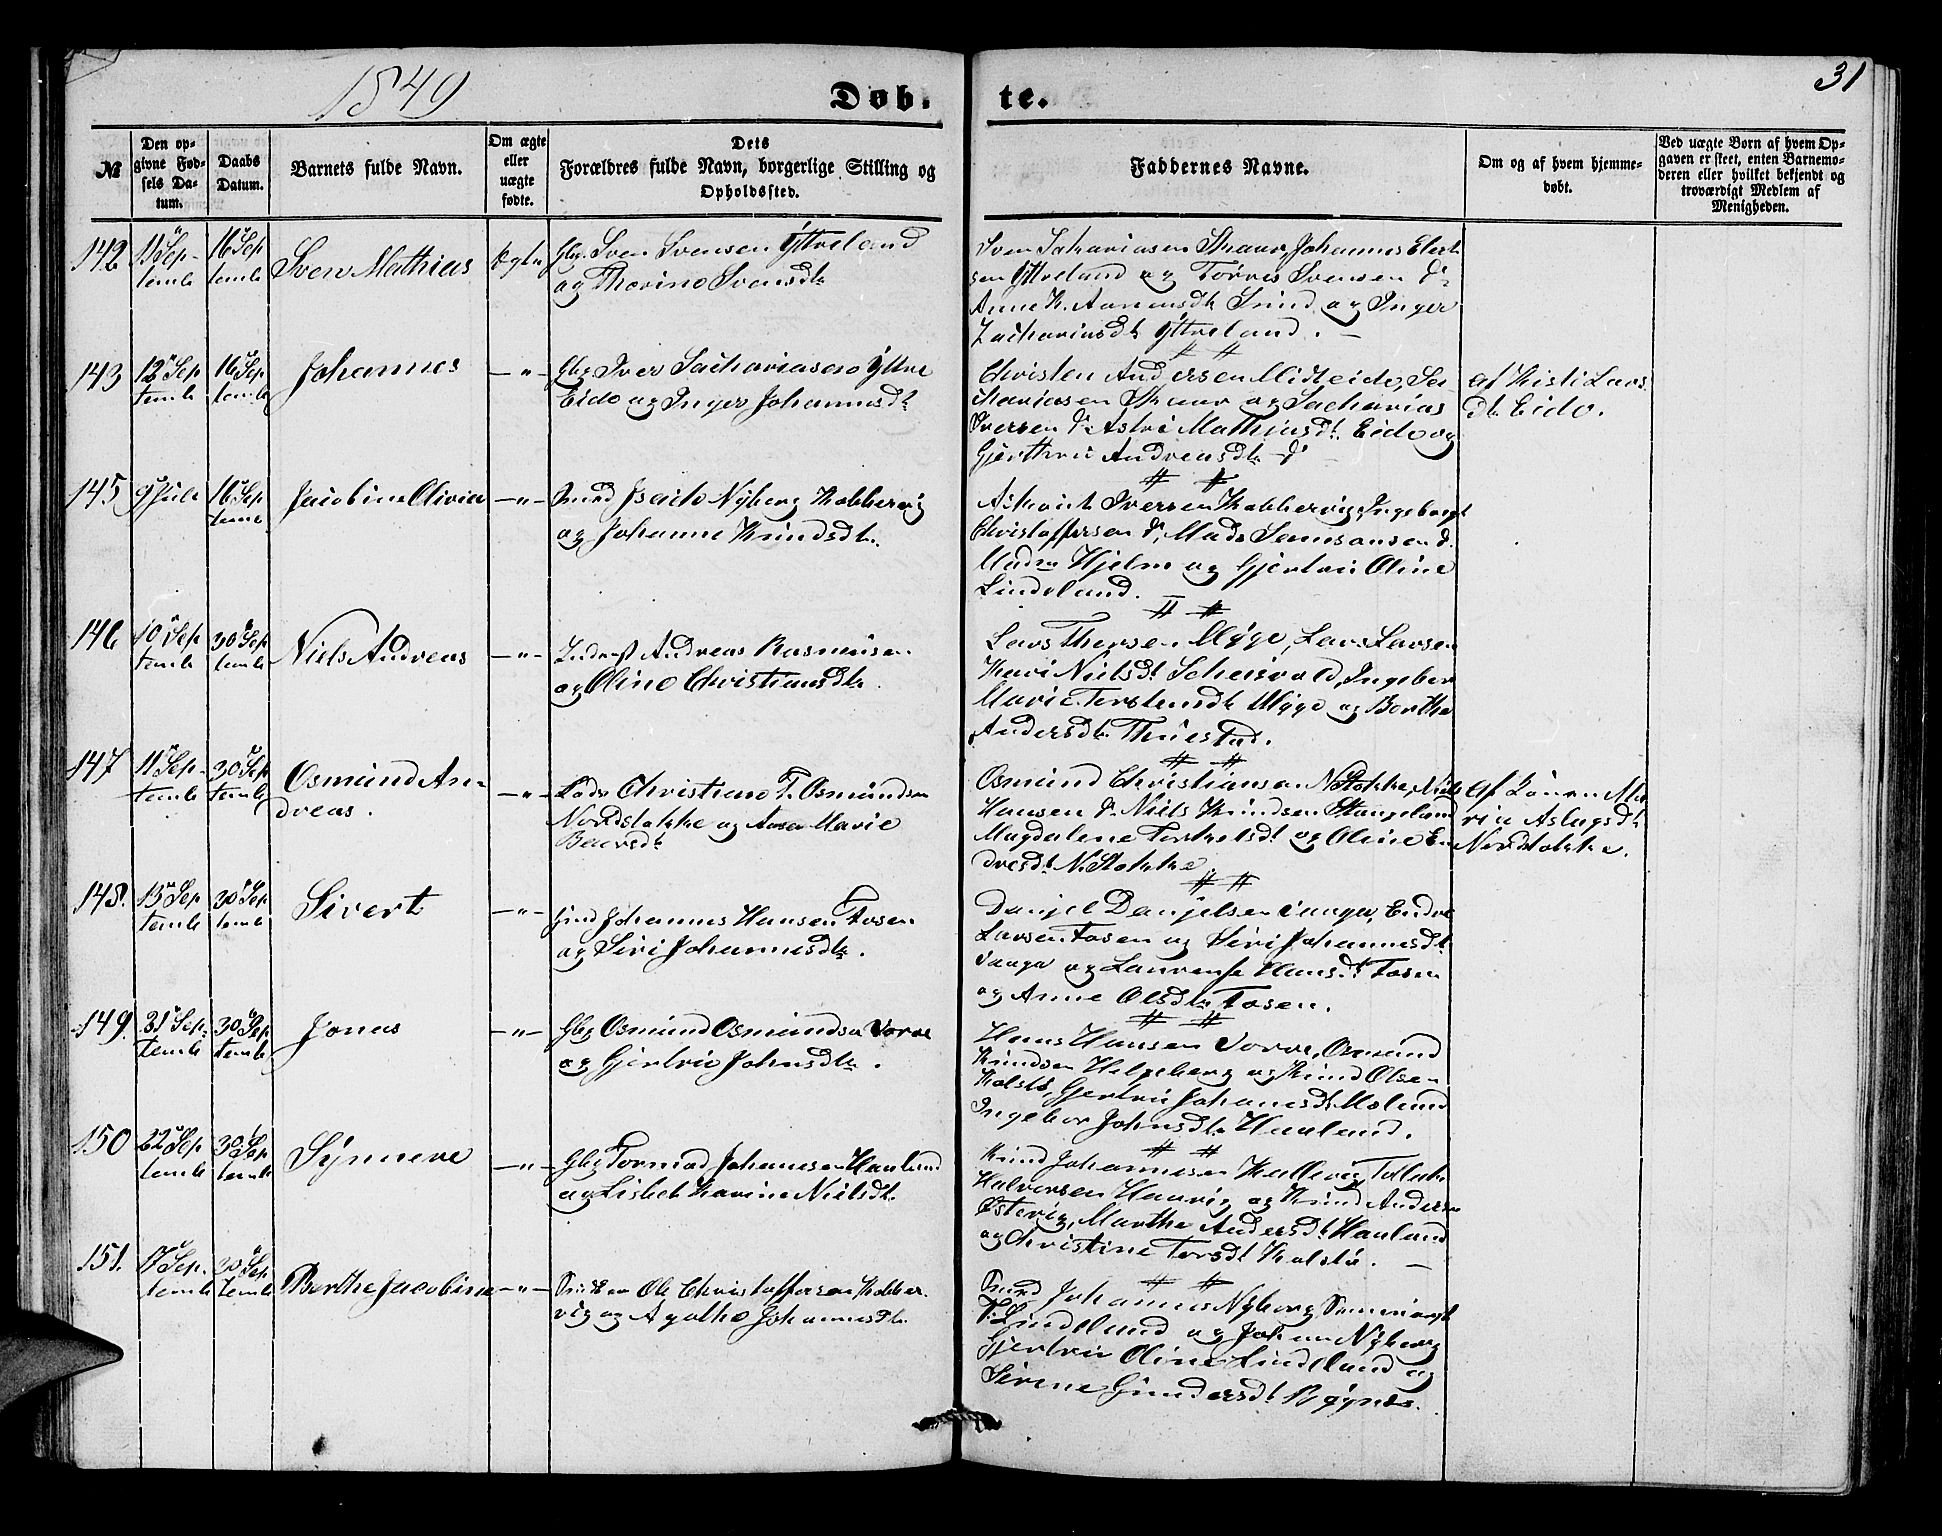 1849
Døb-
te.
31
№
Den op-
givne Fød-
sels Da-
tum.
Daabs
Datum.
Barnets fulde Navn.
Om ægte
eller
uægte
fødte.
Dets
Forældres fulde Navn, borgerlige Stilling og
Opholdssted.
Faddernes Navne.
Om og af hvem hjemme-
døbt.
Ved uægte Børn af hvem Op-
gaven er skeet, enten Barnemo-
deren eller hvilket bekjendt og
troværdigt Medlem af
Menigheden.
142
11 Sep-
temb
16 Sep
temb
Sven Mathias
Ægte
Gbr Sven Svensen Yttreland
og Thorine Svensdtr
Sven Sakariasen Skaar, Johannes Elert
sen Yttreland og Torres Svensen do
Anne K. Aanensdt Lund og Inger
Zachariasdt Yttreland.
143
12 Sep
temb
16 Sep
temb
Johannes
—"—
Gbr Iver Sachariasen Yttre
Eide og Inger Johannesdtr
Christen Andersen Midteide, Sa
kariasen Skaar og Sacharias
Iversen do Astri Mathiasdt. Eide og
Gjerthru Andreasdtr do
af Kisti Lars
dtr Eide.
145
9 Juli
16 Sep
temb
Jacobine Olivia
—"—
Smed Isach Nyberg Kobbervig
og Johanne Knudsdtr.
Iversen Kobbervig, Ingeborg
Christoffersen do, Mads Samsonsen d.
Madm Hjelm og Gjertru Oline
Lindeland.
146
10 Sep
temb
30 Sep
temb
Niels Andreas
—"—
Inderst Andreas Rasmusen
og Oline Christiansdtr.
Lars Thorsen Myge, Lars Larsen
Kari Nielsdt Scheisvold, Ingebor
Marie Torstensdt Myge og Berthe
Andersdtr Thuestad.
147
11 Sep-
temb
30 Sep
temb
Osmund An-
dreas.
—"—
Lods Christian T. Osmundsen
Nordstokke og Asa Marie
Beersdt
Osmund Christiansen N Stokke, Niels
Hansen do Niels Knudsen Stangeland
Magdalene Torkelsdt og Oline En
dresdt N. Stokke.
Af Karen Ma
rie Aslagsdt
Nordstokke.
148.
15 Sep
temb
30 Sep
temb
Sivert
—"—
Johannes Hansen Tosen
og Siri Johannesdtr.
Danjel Danjelsen Vaage, Endre
Larsen Tosen og Siri Johannesdt
Vaage og Laurense Hansdt Tosen
og Anne Olsdtr Tosen.
149.
21 Sep-
temb
30 Sep
temb
Jonas
—"—
Gbr Osmund Osmundsen Vorre
og Gjertru Johnsdtr.
Hans Hansen Vorre, Osmund
Knudsen Helgeberg og Knud Olsen
Kolstø, Gjertru Johanesdt
Ingebor Johnsdtr Haaland.
150
22 Sep
temb
30 Sep
temb
Synneve
—"—
Gbr Tormod Johanesen Haaland
og Lisbet Karine Nielsdt.
Knud Johannesen Kallevig, Tollak
Halvorsen Haavig og Knud Anders
Østevig, Marthe Andersdt Haaland
og Christine Torsdt Kolstø.
151.
17 Sep.
temb
30 Sep
temb
Berthe Jacobine
—"—
Ole Christoffersen Kobber-
vig og Agathe Johannesdtr.
Smed Johannes Nyberg
T. Lindeland og Johan Nyberg
Gjertru Oline Lindeland og
Serine Gundersdt Bøgnes.